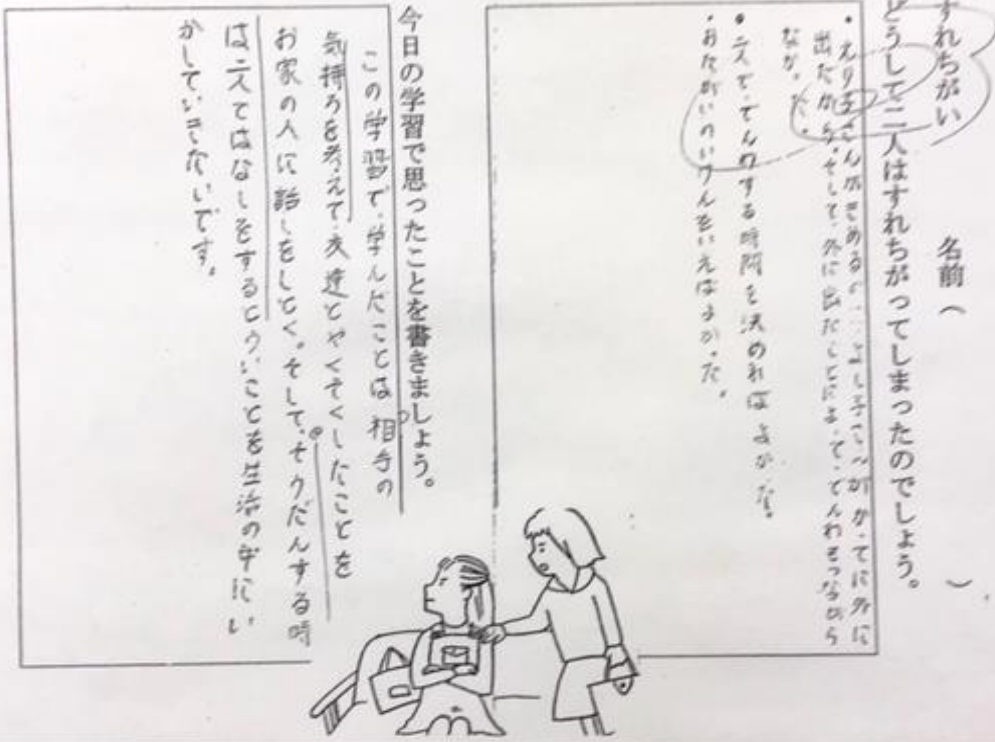 すれちがい
名前（　　　）
どうして二人はすれちがってしまったのでしょう。
・えり子さんがきめるの、よし子さんがかってに外に
出たから。そして、外に出たことによって、でんわもつながら
なかった。
・二人ででんわする時間を決めればよかった。
・おたがいのいけんをいえばよかった。
今日の学習で思ったことを書きましょう。
この学習で、学んだことは相手の
気持ちを考えて、友達とやくそくしたことを
お家の人に話しをしとく。そして、そうだんする時
は二人ではなしをするということを生活の中にい
かしていきたいです。